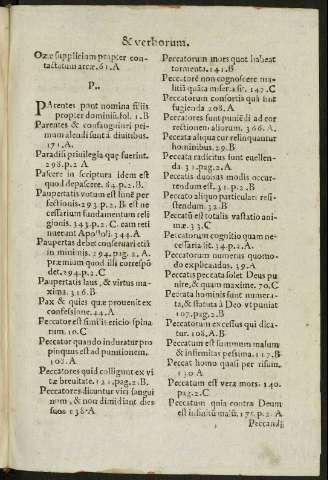 & verborum.
Ozæ supplicium propter con-
tactatum arcæ. 61. A
P..
PArentes pont nomina filiis
propter dominiũ. fol. 1. B
Parentes & consanguinei pri-
mum alendi sunt à diuitibus.
171. A.
Paradisi priuilegia quę fuerint.
298. p. 2. A
Pascere in scriptura idem est
quod depascere. 84. p. 2. B.
Paupertatis votum est línẽ per
fectionis. 293. p. 2. B est ne
cessarium fundamentum reli
gionis. 343. p. 2. C. eam reti
nuerunt Apostoli. 344. A
Paupertas debet conseruari etiã
in minimis. 294. pag. 2. A.
præmium quod illi correspõ
det. 294. p. 2. C
Paupertatis laus, & virtus ma-
xima. 316. B
Pax & quies quæ prouenit ex
confessione. 44. A
Peccator est similis ericio spina
rum. 10. C
Peccator quando induratur pro
pinquus est ad punitionem.
107. A.
Peccatores quid colligunt ex vi
tæ breuitate. 121. pag. 2. B.
Peccatores dicuntur viri sangui
num, & non dimidiant dies
suos 138. A
Peccatorum mors quot habeat
tormenta. 141. B
Peccatorẽ non cognoscere ma-
litiã quãta miseria sit. 147. C
Peccatorum consortia quã sint
fugienda 208. A
Peccatores sunt puniẽdi ad cor
rectionem aliorum. 366. A.
Peccata aliqua cur relinquantur
hominibus. 29. B.
Peccata radicitus sunt euellen-
da. 31. pag. 2. A.
Peccatis duobus modis occur-
rendum est. 31. p. 2. B
Peccato aliquo particular. resi-
stendum. 32. B
Peccatũ est totalis vastatio ani-
mæ. 33. C
Peccatorum cognitio quam ne-
cessaria sit. 34. p. 2. A.
Peccatorum numerus quomo-
do explicandus. 39. A
Peccatis peccata solet Deus pu
nire, & quam maxime. 70. C
Peccata hominis sunt numera-
ta, & statuta à Deo vt puniat
107. pag. 2. B
Peccatorum excessus qui dica-
tur. 108. A. B
Peccatum est summum malum
& infirmitas pessima. 117. B
Peccat homo quasi per risum.
130 A
Peccatum est vera mors. 140.
pag. 2. C
Peccatum quia contra Deum
est infinitũ malũ. 175. p. 2. A
Peccandi